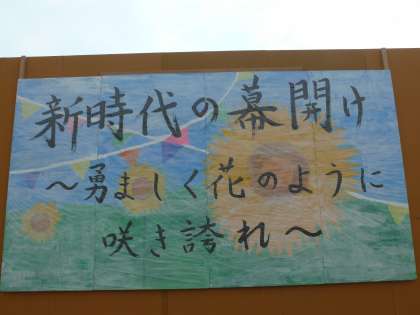 新時代の幕開け
～勇ましく花のように
咲き誇れ～